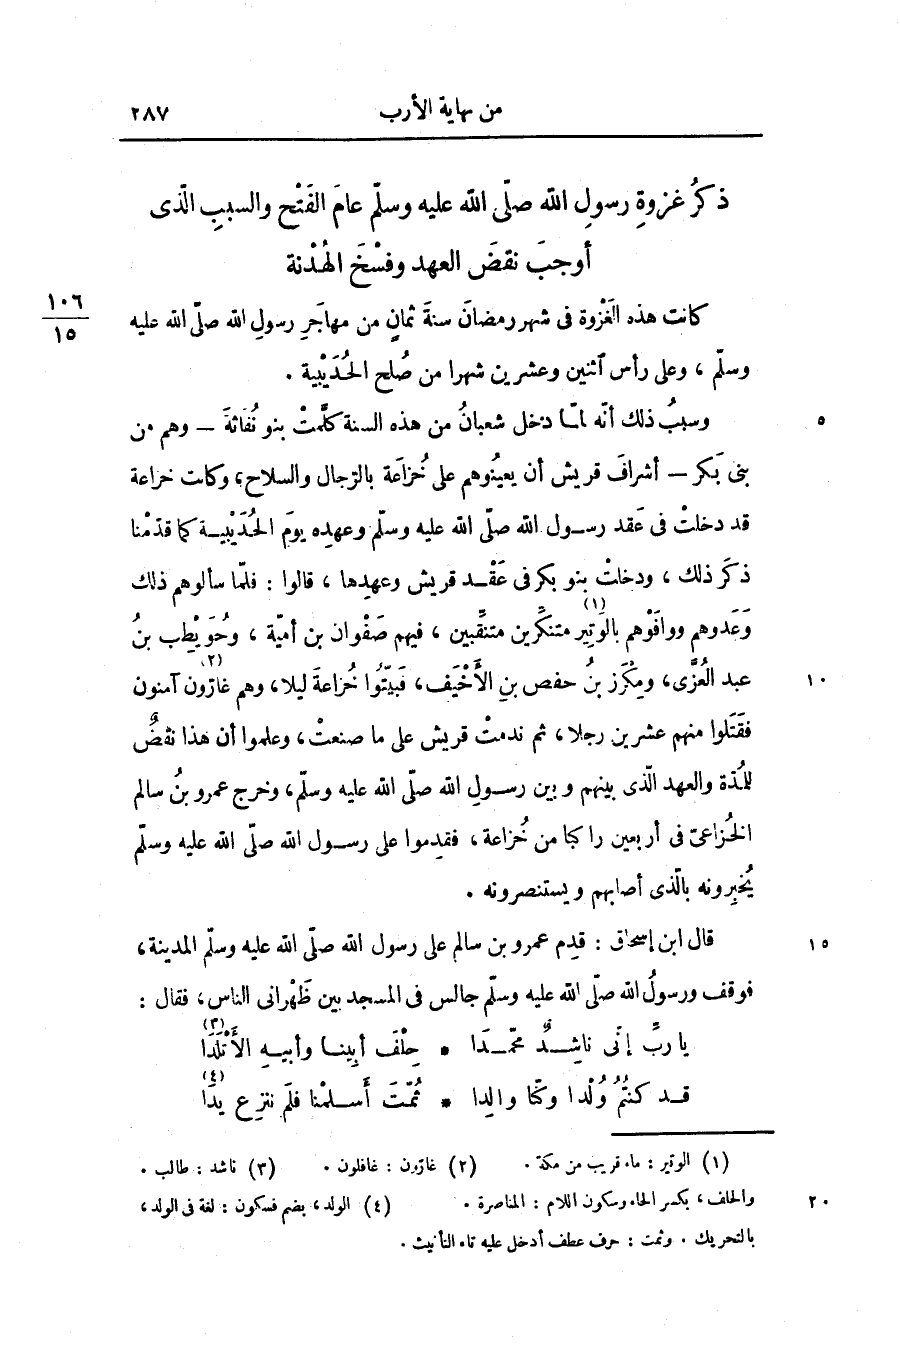 من نهاية الأرب ٢٨٧
ذكرُ غزوةِ رسولِ الله صلّى الله عليه وسلّم عامَ الفَتْح والسببِ الّذى
أوجبَ نقضَ العهد وفسْخَ الهُدْنة
كانت هذه الغَزْوة فى شهر رمضانَ سنةَ ثمانٍ من مهاجَرِ رسولِ الله صلّى الله عليه
١٠٦
١٥
وسلّم ، وعلى رأس آثنين وعشرين شهرا من صُلح الحُدَيْبِية .
وسببُ ذلك أنّه لمّا دخل شعبانُ من هذه السنة كلَّمتْ بنو نُفاثةَ – وهم من ٥
بنى بَكر – أشرافَ قريش أن يعينُوهم على خُزاعَة بالرّجال والسلاح؛ وكانت خزاعة
قد دخلتْ فى عَقد رسول الله صلّى الله عليه وسلّم وعهدِه يومَ الحُدَيْبِية كما قدّمْنا
ذكَر ذلك ، ودخلتْ بنو بكر فى عَقْد قريش وعهدِها ، قالوا : فلمّا سألوهم ذلك
وَعَدوهم ووافَوْهم بالوَتِير (١) متنكِّرين متنقِّبين ، فيهم صَفْوان بن أميّة ، وحُوَيْطِب بنُ
عبد العُزَّى، ومِكْرَز بنُ حفص بنِ الأَخْيَف، فبَيّتُوا خُزاعةَ ليلا، وهم غارّون (٢) آمنون ١٠
فقَتَلوا منهم عشرين رجلا، ثم ندمتْ قريش على ما صنعتْ، وعلموا أن هذا نقضٌ
للمُدّة والعهد الّذى بينهم وبين رسولِ الله صلّى الله عليه وسلّم، وخرج عمرو بنُ سالم
الخُزاعىّ فى أربعين راكبا من خُزاعة، فقدِموا على رسول الله صلّى الله عليه وسلّم
يُخبِرونه بالّذى أصابهم ويستنصرونه .
قال ابن إسحاق : قدِم عمرو بن سالم على رسول الله صلّى الله عليه وسلّم المدينة، ١٥
فوقف ورسولُ الله صلّى الله عليه وسلّم جالس فى المسجد بين ظَهْرانى الناس، فقال :
يا ربِّ إنّى ناشِدٌ محّمدَا * حِلْفَ أبِينا وأبيهِ الأَتْلَدَا (٣)
قد كنتُمُ وُلْدا وكنّا والِدا * ثُمّتَ أَسلمْنا فلَم ننزِع يدَا (٤)
(١) الوتير : ماء قريب من مكة . (٢) غارّون : غافلون . (٣) ناشد : طالب .
والحلف، بكسر الحاء وسكون اللام : المناصرة . (٤) الولد، بضم فسكون : لغة فى الولد، ٢٠
بالتحريك . وثمت : حرف عطف أدخل عليه تاء التأنيث .